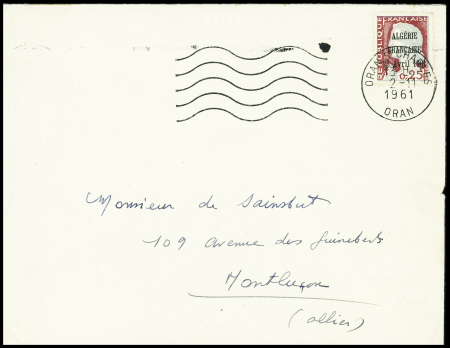 RÉPUBLIQUE FRANÇAISE
ALGÉRIE
FRANÇAISE
Avril 196
0.25
ORAN
2-11
1961
ORAN
Monsieur de Sainsbut
109 Avenue des Guineberts
Montluçon
(Allier)